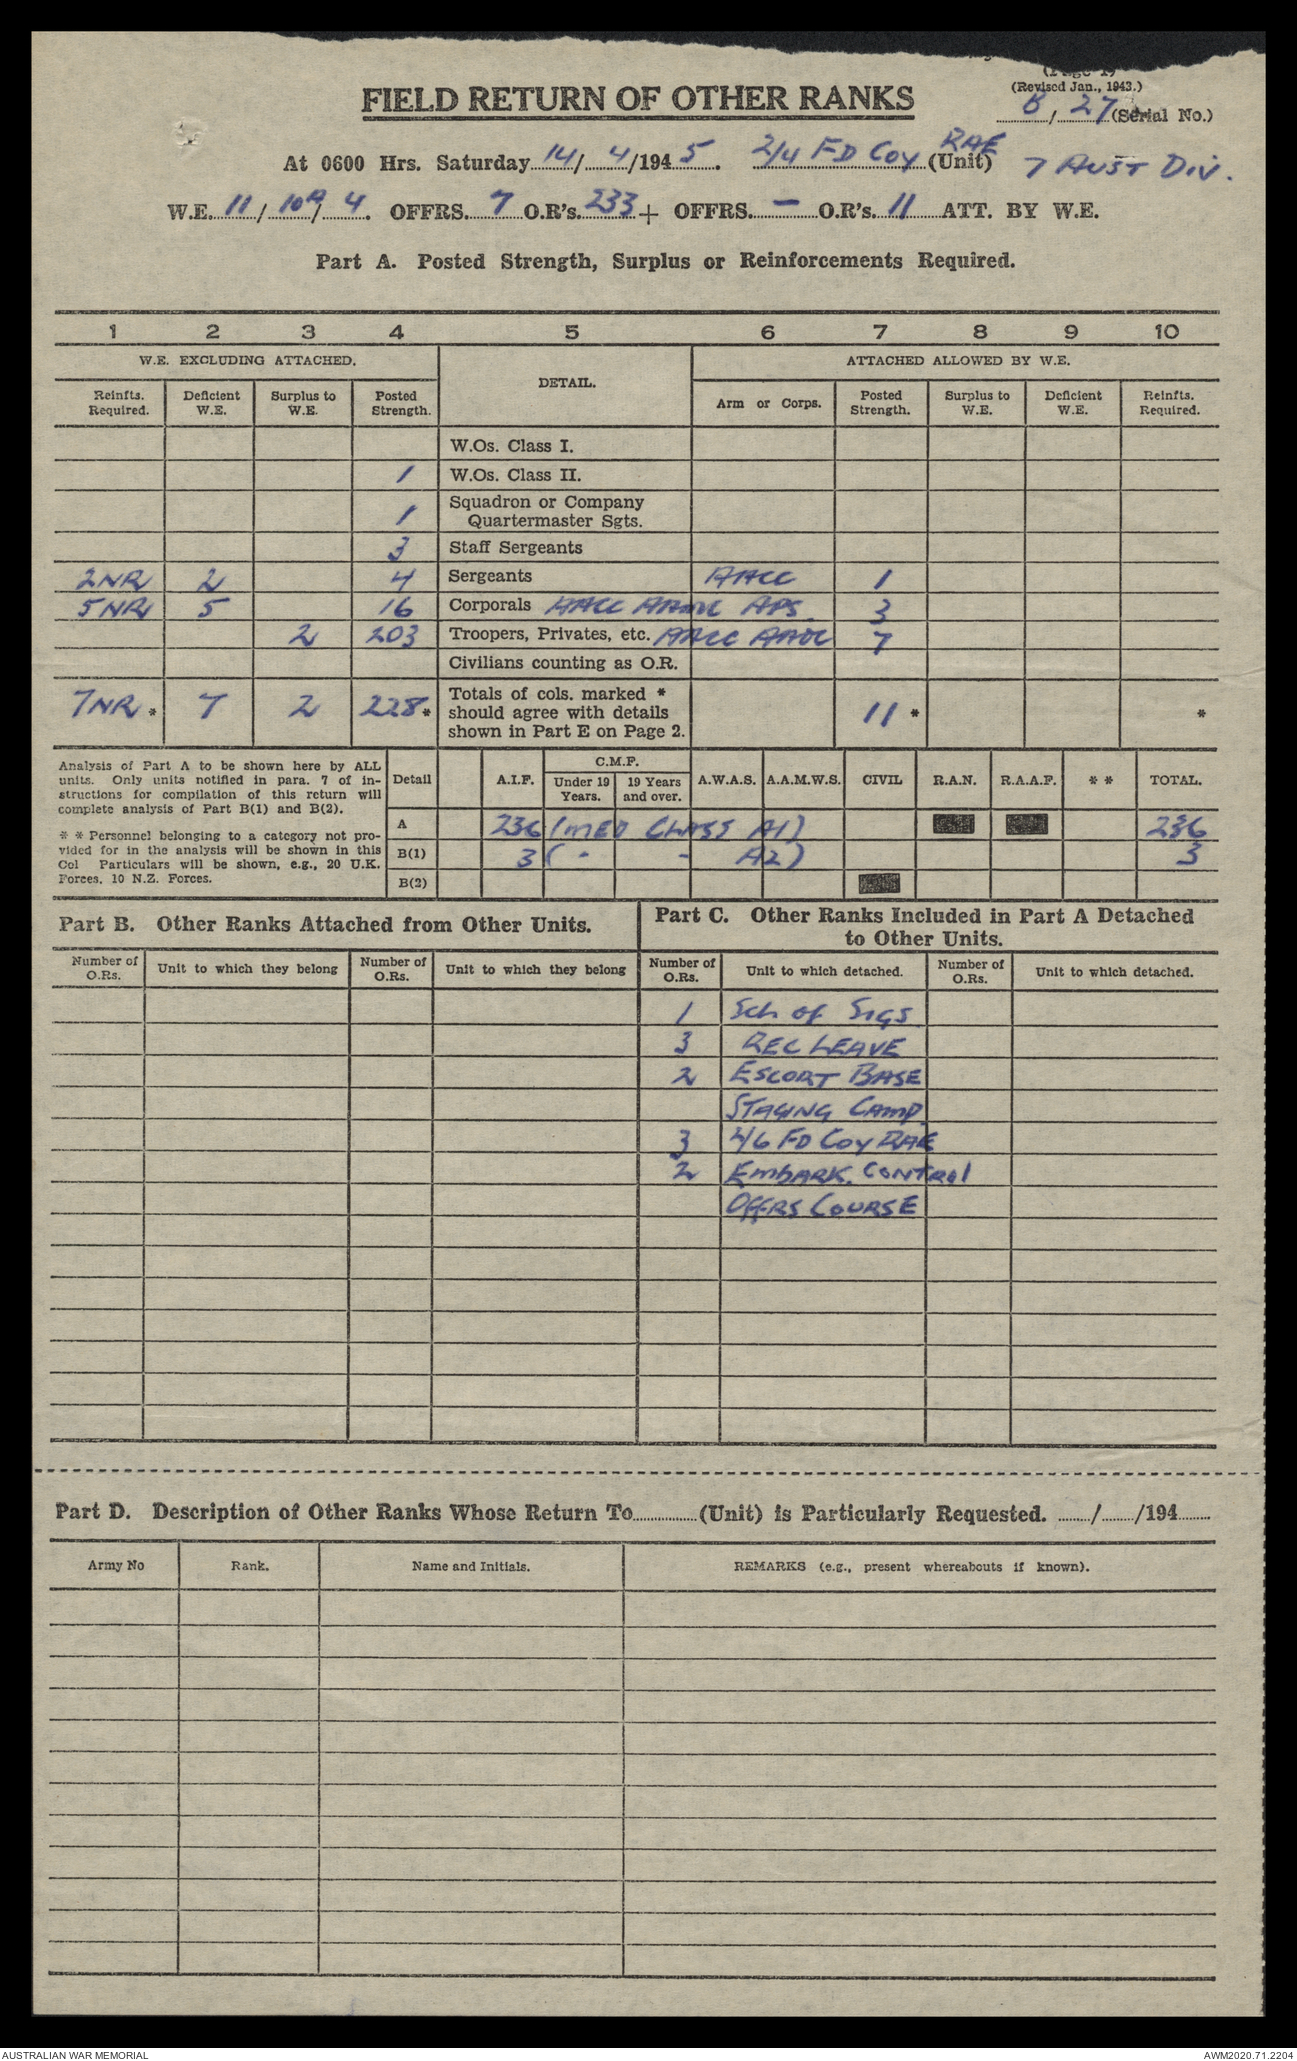 (Revised Jan., 1943.)
FIELD RETURN OF OTHER RANKS
B / 27 (Serial No.)
At 0600 Hrs. Saturday 14/ 4/194 5. 2/4 FD COY RAE (Unit) 7 AUST DIV.
W.E. 11 / 10A/ 4. OFFRS. 7 O.R's. 233 + OFFRS. — O.R's. 11 ATT. BY W.E.
Part A. Posted Strength, Surplus or Reinforcements Required.
1 2 3 4 5 6 7 8 9 10
W.E. EXCLUDING ATTACHED. DETAIL. ATTACHED ALLOWED BY W.E.
Reinfts. Required. Deficient W.E. Surplus to W.E. Posted Strength. Arm or Corps. Posted Strength. Surplus to W.E. Deficient W.E. Reinfts. Required.
W.Os. Class I.
1 W.Os. Class II.
1 Squadron or Company Quartermaster Sgts.
3 Staff Sergeants
2NR 2 4 Sergeants AACC 1
5NR 5 16 Corporals AACC AAMC APS 3
2 203 Troopers, Privates, etc. AACC 7
Civilians counting as O.R.
7NR * 7 2 228 * Totals of cols. marked * should agree with details shown in Part E on Page 2. 11 * *
Analysis of Part A to be shown here by ALL
units. Only units notified in para. 7 of in-
structions for compilation of this return will
complete analysis of Part B(1) and B(2).
* * Personnel belonging to a category not pro-
vided for in the analysis will be shown in this
Col Particulars will be shown, e.g., 20 U.K.
Forces, 10 N.Z. Forces.
Detail A.I.F. C.M.F. Under 19 Years. 19 Years and over. A.W.A.S. A.A.M.W.S. CIVIL R.A.N. R.A.A.F. * * TOTAL.
A 236 (MED CLASS A1) 236
B(1) 3 ( - - A2) 3
B(2)
Part B. Other Ranks Attached from Other Units.
Part C. Other Ranks Included in Part A Detached
to Other Units.
Number of O.Rs. Unit to which they belong Number of O.Rs. Unit to which they belong Number of O.Rs. Unit to which detached. Number of O.Rs. Unit to which detached.
1 Sch of SIGS
3 REC LEAVE
2 ESCORT BASE
STAGING CAMP
3 2/6 FD COY RAE
2 EMBARK. CONTROL
OFFRS COURSE
Part D. Description of Other Ranks Whose Return To (Unit) is Particularly Requested. / /194
Army No Rank. Name and Initials. REMARKS (e.g., present whereabouts if known).
AUSTRALIAN WAR MEMORIAL AWM2020.71.2204